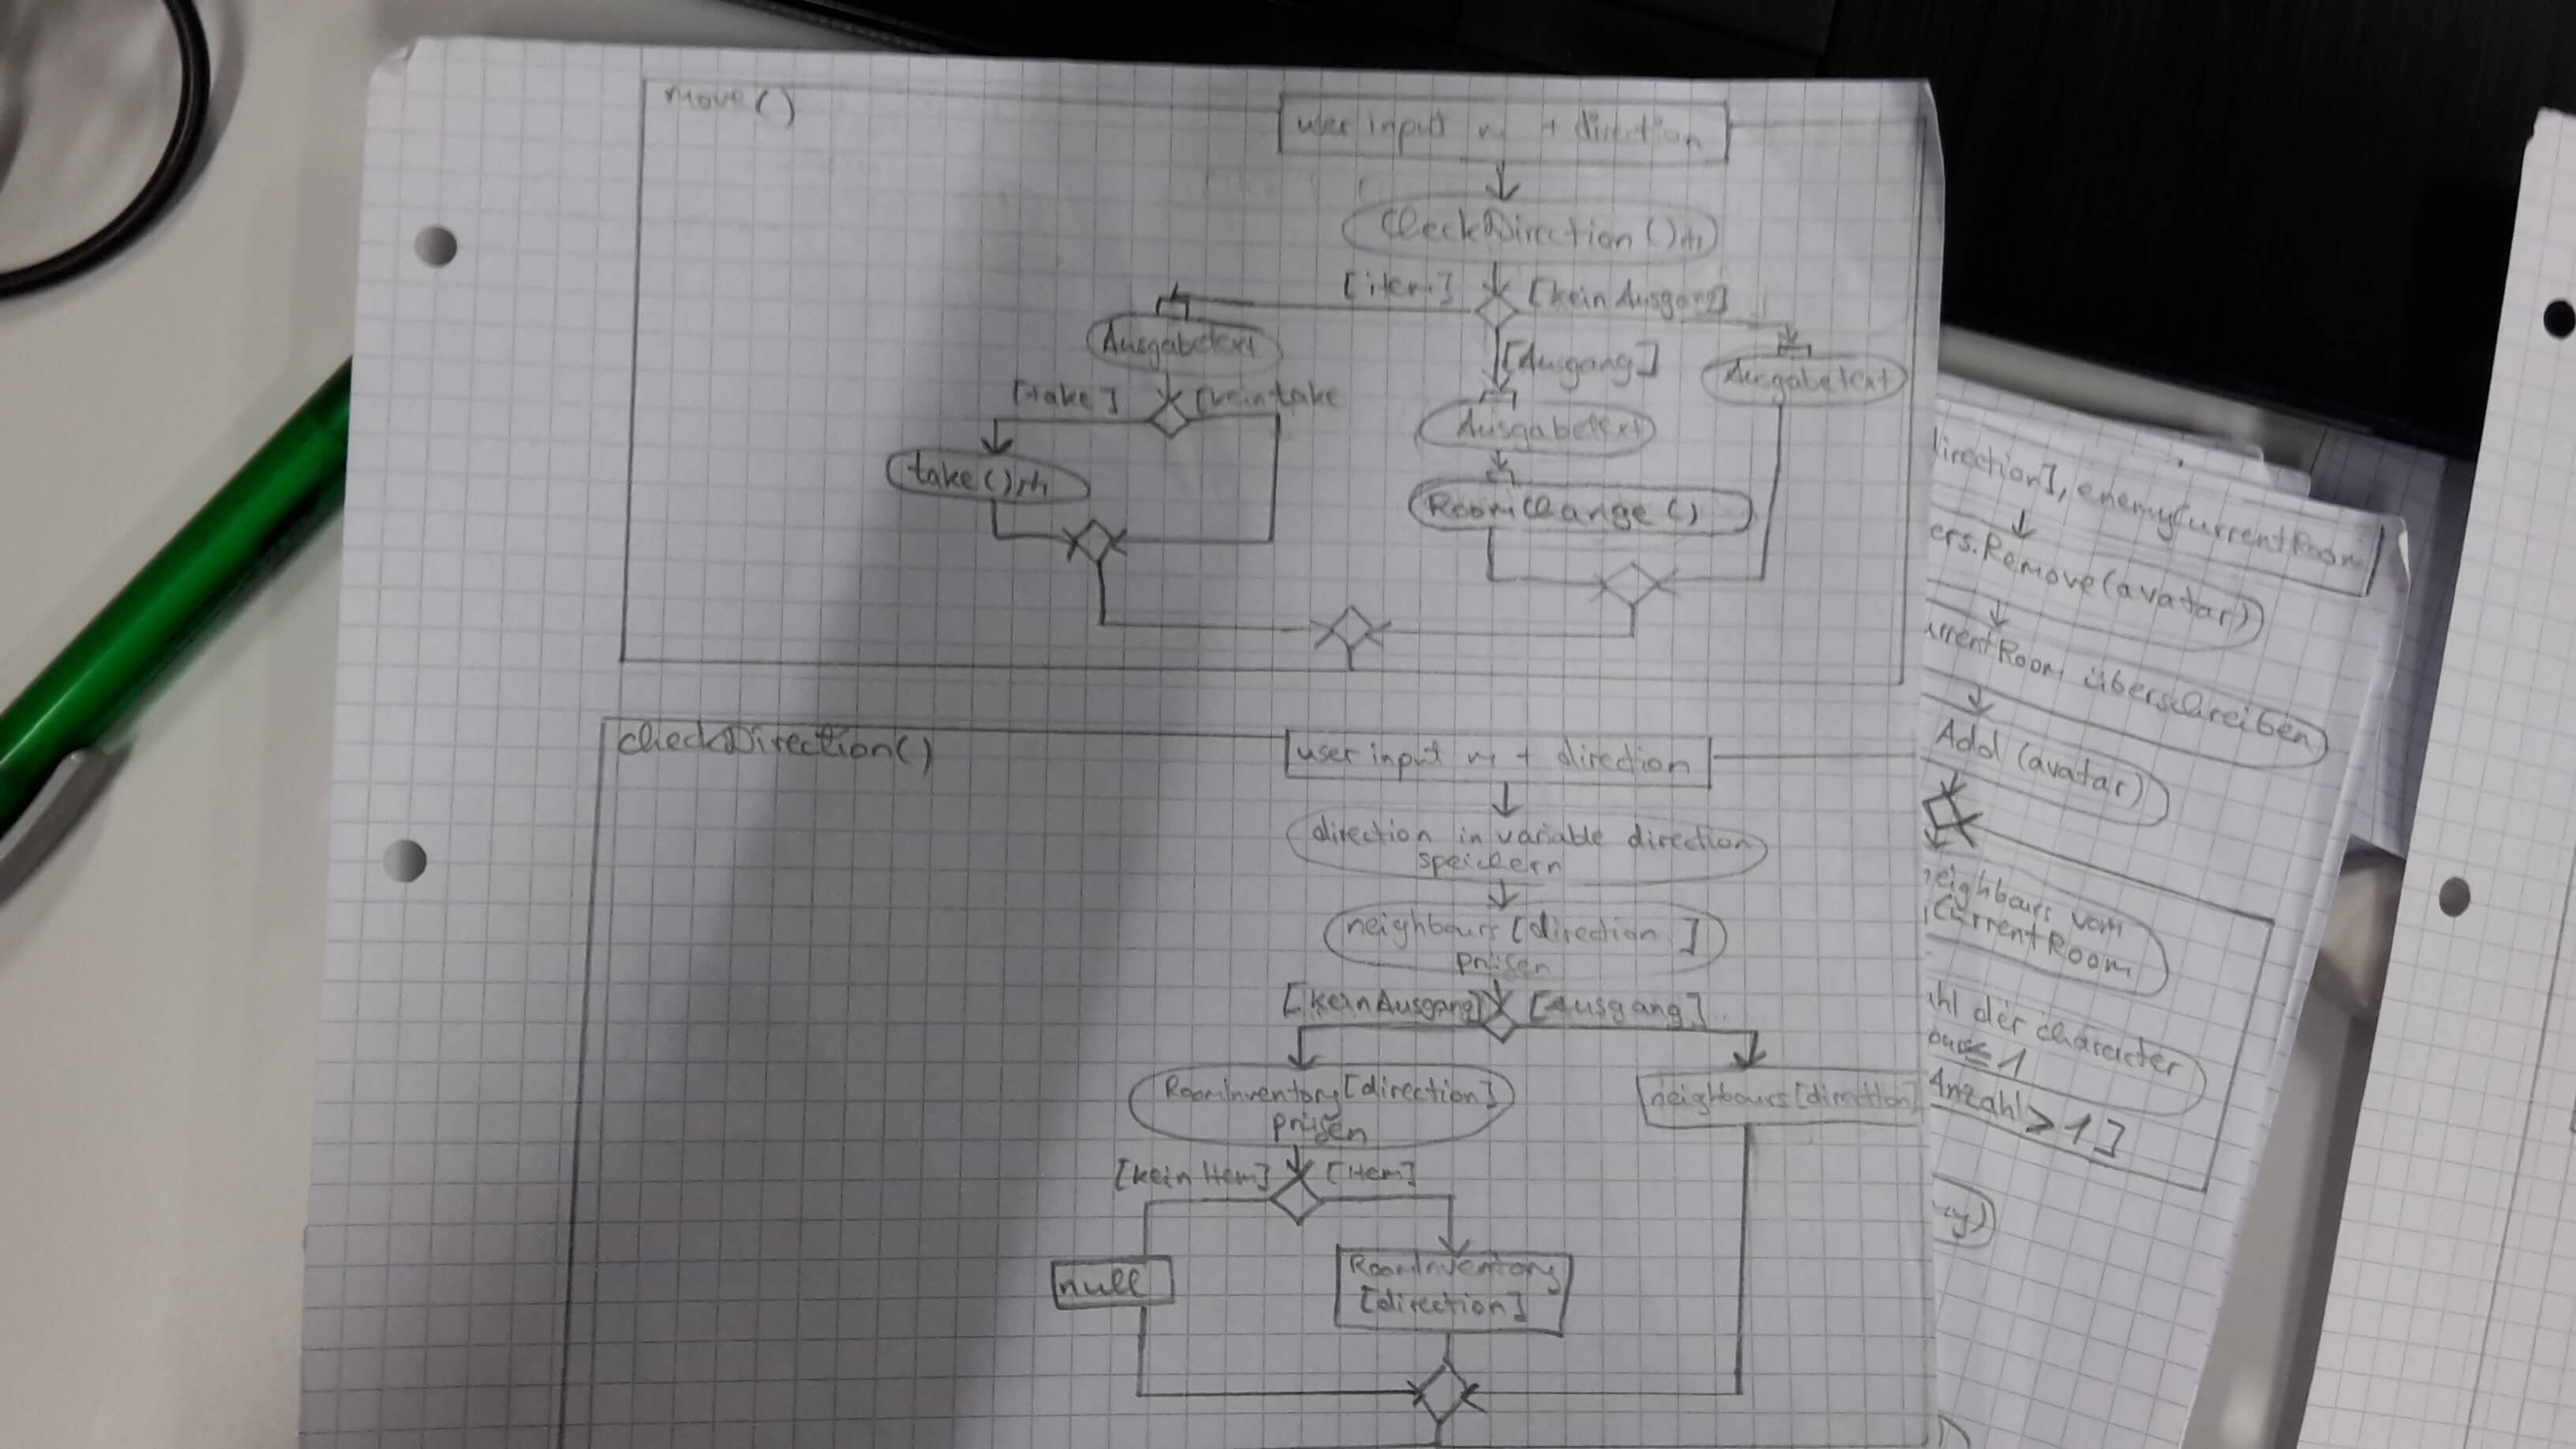 move()
user input m + direction
checkDirection()
[item] [kein Ausgang]
Ausgabetext
[Ausgang]
Ausgabetext
[take] [kein take
Ausgabetext
take()
RoomChange()
checkDirection()
user input m + direction
direction in variable direction
speichern
neighbours [direction ]
prüfen
[kein Ausgang] [Ausgang]
RoomInventory[direction]
prüfen
neighbours[direction]
[kein Item] [Item]
null
RoomInventory
[direction]
direction], enemyCurrentRoom
ers.Remove(avatar)
urrentRoom überschreiben
Add (avatar)
neighbours vom
CurrentRoom
hl der character
≤ 1
Anzahl ≥ 1]